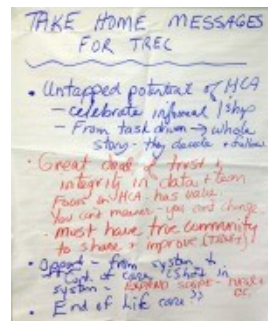 TAKE HOME MESSAGES
FOR TREC
• Untapped potential of HCA
- celebrate informal l'ship
- From task driven → whole
story - they decide + follow
• Great deal of trust +
integrity in data + team
Focus on HCA has value.
You can't measure - you can't change.
• must have true community
to share + improve (TREC)
- from system to
cont. of care
system - EXPAND SCOPE -
• End of Life care ??